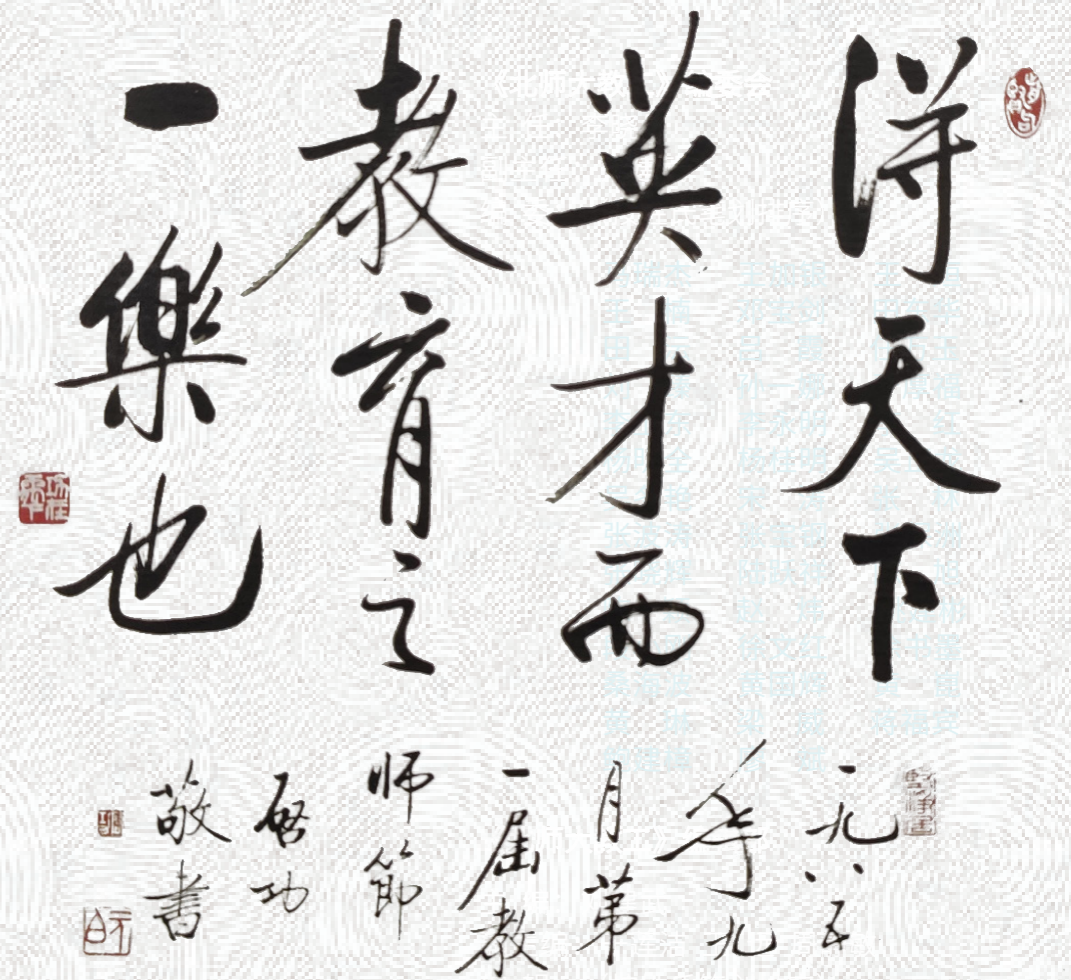 得天下
英才而
教育之
一樂也
一九八五
年九
月第
一届教
师節
启功
敬書